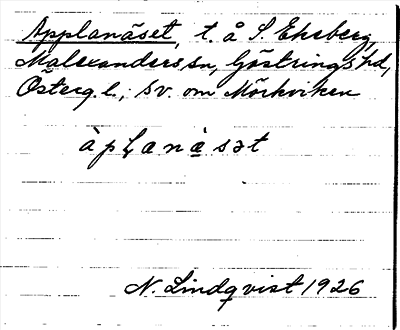 Applanäset, t. å S. Ekeberg,
Malexanders sn, Göstrings hd,
Österg. l.; sv. om Mörkviken
àpḷanä̀sət
N. Lindqvist 1926